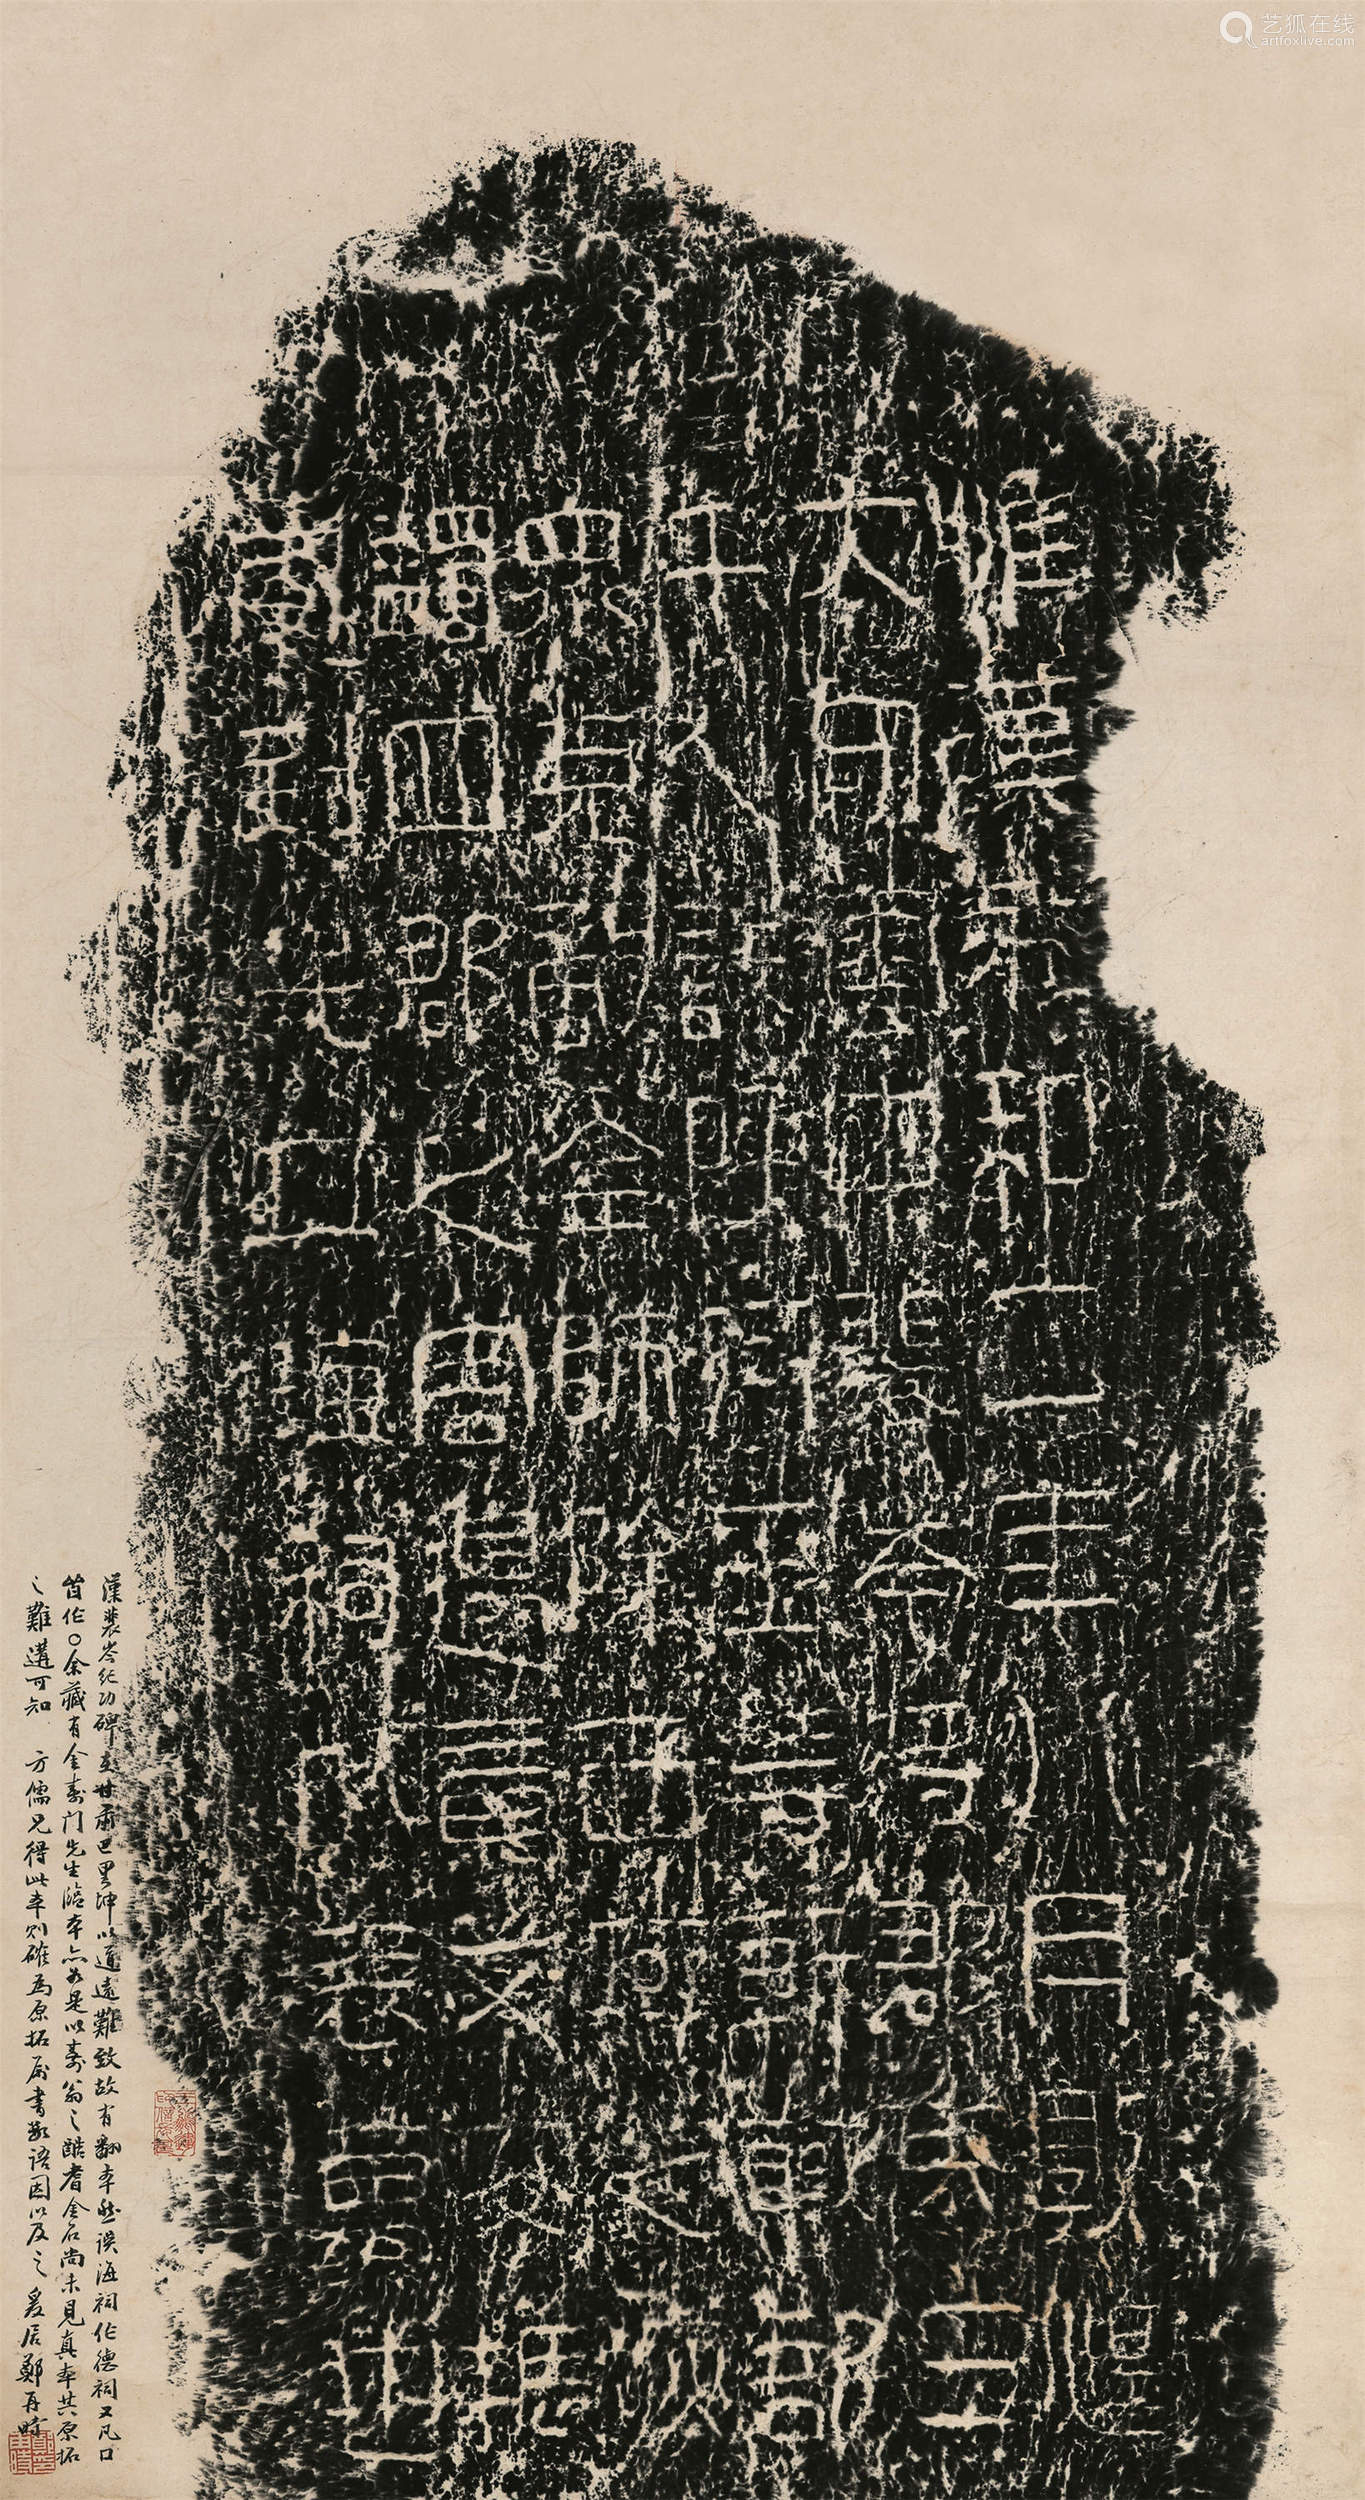 艺狐在线
artfoxlive.com
惟漢永和二年八月敦煌
大守雲中裴岑將郡兵三
千人誅呼衍王等斬馘部
衆克敵全師除西域之疢
蠲四郡之害邊竟艾安振
威到此立海祠以表萬世
漢裴岑紀功碑立甘肅巴里坤以道遠難致故有翻本然誤海祠作德祠又凡口
皆作〇余藏有金壽門先生臨本亦如是以壽翁之酷耆金石尚未見真本其原拓
之難遘可知 方儒兄得此本則確爲原拓屬書數語因以及之 爰居鄭再時